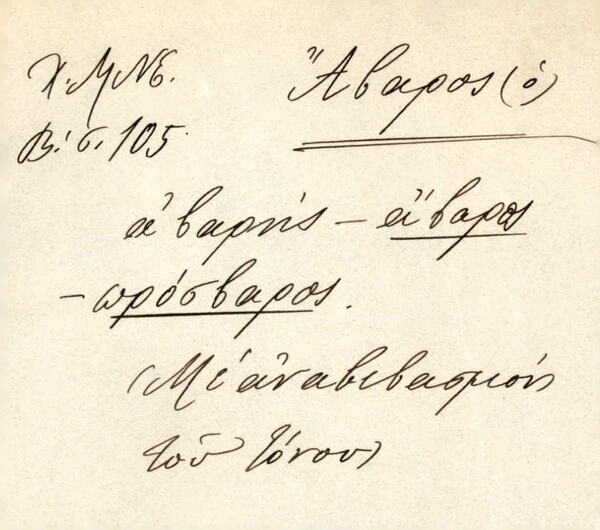 Χ. ΜΝΕ.
Β΄. σ. 105.
Ἄβαρος (ὁ)
ἀβαρής – ἄβαρος
– πρόσβαρος.
(Μὲ ἀναβιβασμὸν
τοῦ τόνου)